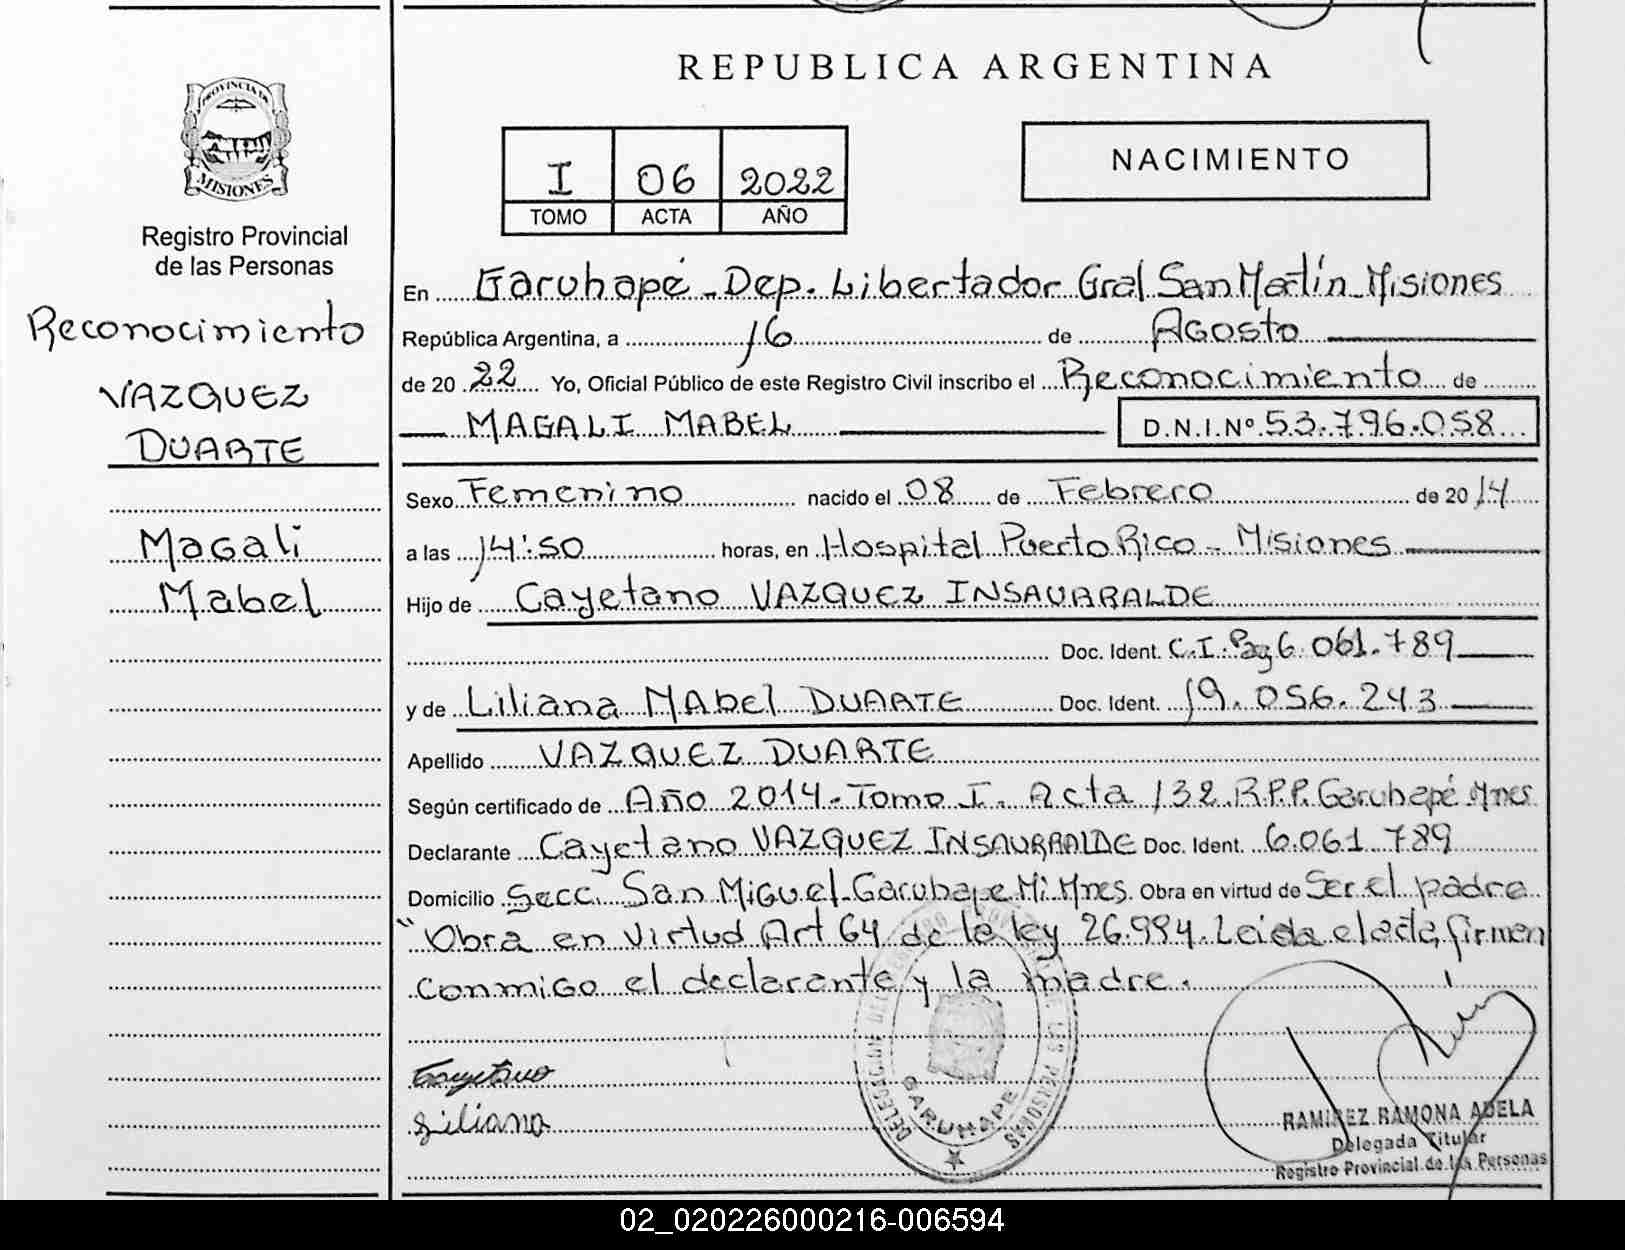 REPUBLICA ARGENTINA
PROVINCIA DE
MISIONES
Registro Provincial
de las Personas
Reconocimiento
VAZQUEZ
DUARTE
Magali
Mabel
I 06 2022
TOMO ACTA AÑO
NACIMIENTO
En Garuhapé - Dep. Libertador Gral San Martín Misiones
República Argentina, a 16 de Agosto
de 2022 Yo, Oficial Público de este Registro Civil inscribo el Reconocimiento de
MAGALI MABEL D.N.I.Nº 53.796.058
Sexo Femenino nacido el 08 de Febrero de 2014
a las 14:50 horas, en Hospital Puerto Rico - Misiones
Hijo de Cayetano VAZQUEZ INSAURRALDE
Doc. Ident. C.I. Pay 6.061.789
y de Liliana MAbel DUARTE Doc. Ident. 19.056.243
Apellido VAZQUEZ DUARTE
Según certificado de Año 2014. Tomo I. Acta 132 R.P.P. Garuhapé Mnes
Declarante Cayetano VAZQUEZ INSAURRALDE Doc. Ident. 6.061.789
Domicilio Secc. San Miguel-Garuhape Mi. Mnes. Obra en virtud de Ser el padre
"Obra en Virtud Art 64 de la ley 26.994. Leida el acta, firman
conmigo el declarante y la madre.
Cayetano
Liliana
GARUHAPE
RAMIREZ RAMONA ADELA
Delegada Titular
Registro Provincial de las Personas
02_020226000216-006594